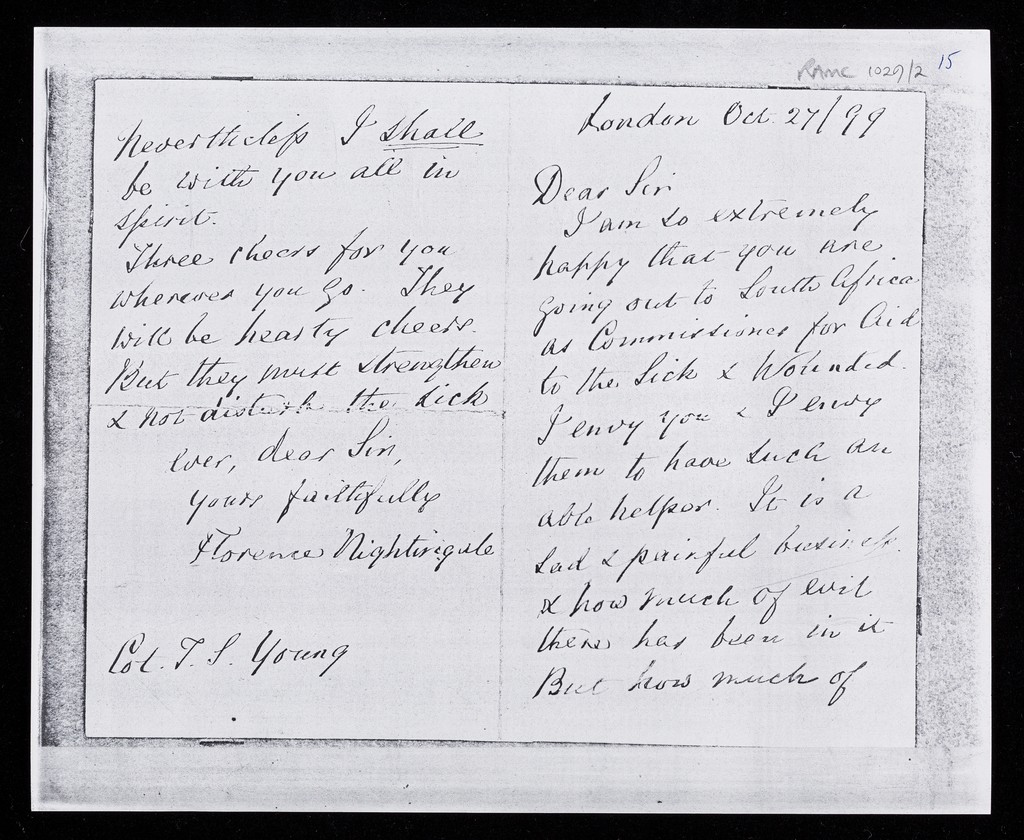 RAMC 1029/2 15
London Oct. 27/99
Dear Sir
I am so extremely
happy that you are
going out to South Africa
as Commissioner for Aid
to the Sick & Wounded.
I envy you & I envy
them to have such an
able helper. It is a
sad & painful business.
& how much of evil
there has been in it
But how much of
Nevertheless I shall
be with you all in
spirit.
Three cheers for you
wherever you go. They
will be hearty cheers.
But they must strengthen
& not disturb the sick
ever, dear Sir,
yours faithfully
Florence Nightingale
Col. J. S. Young